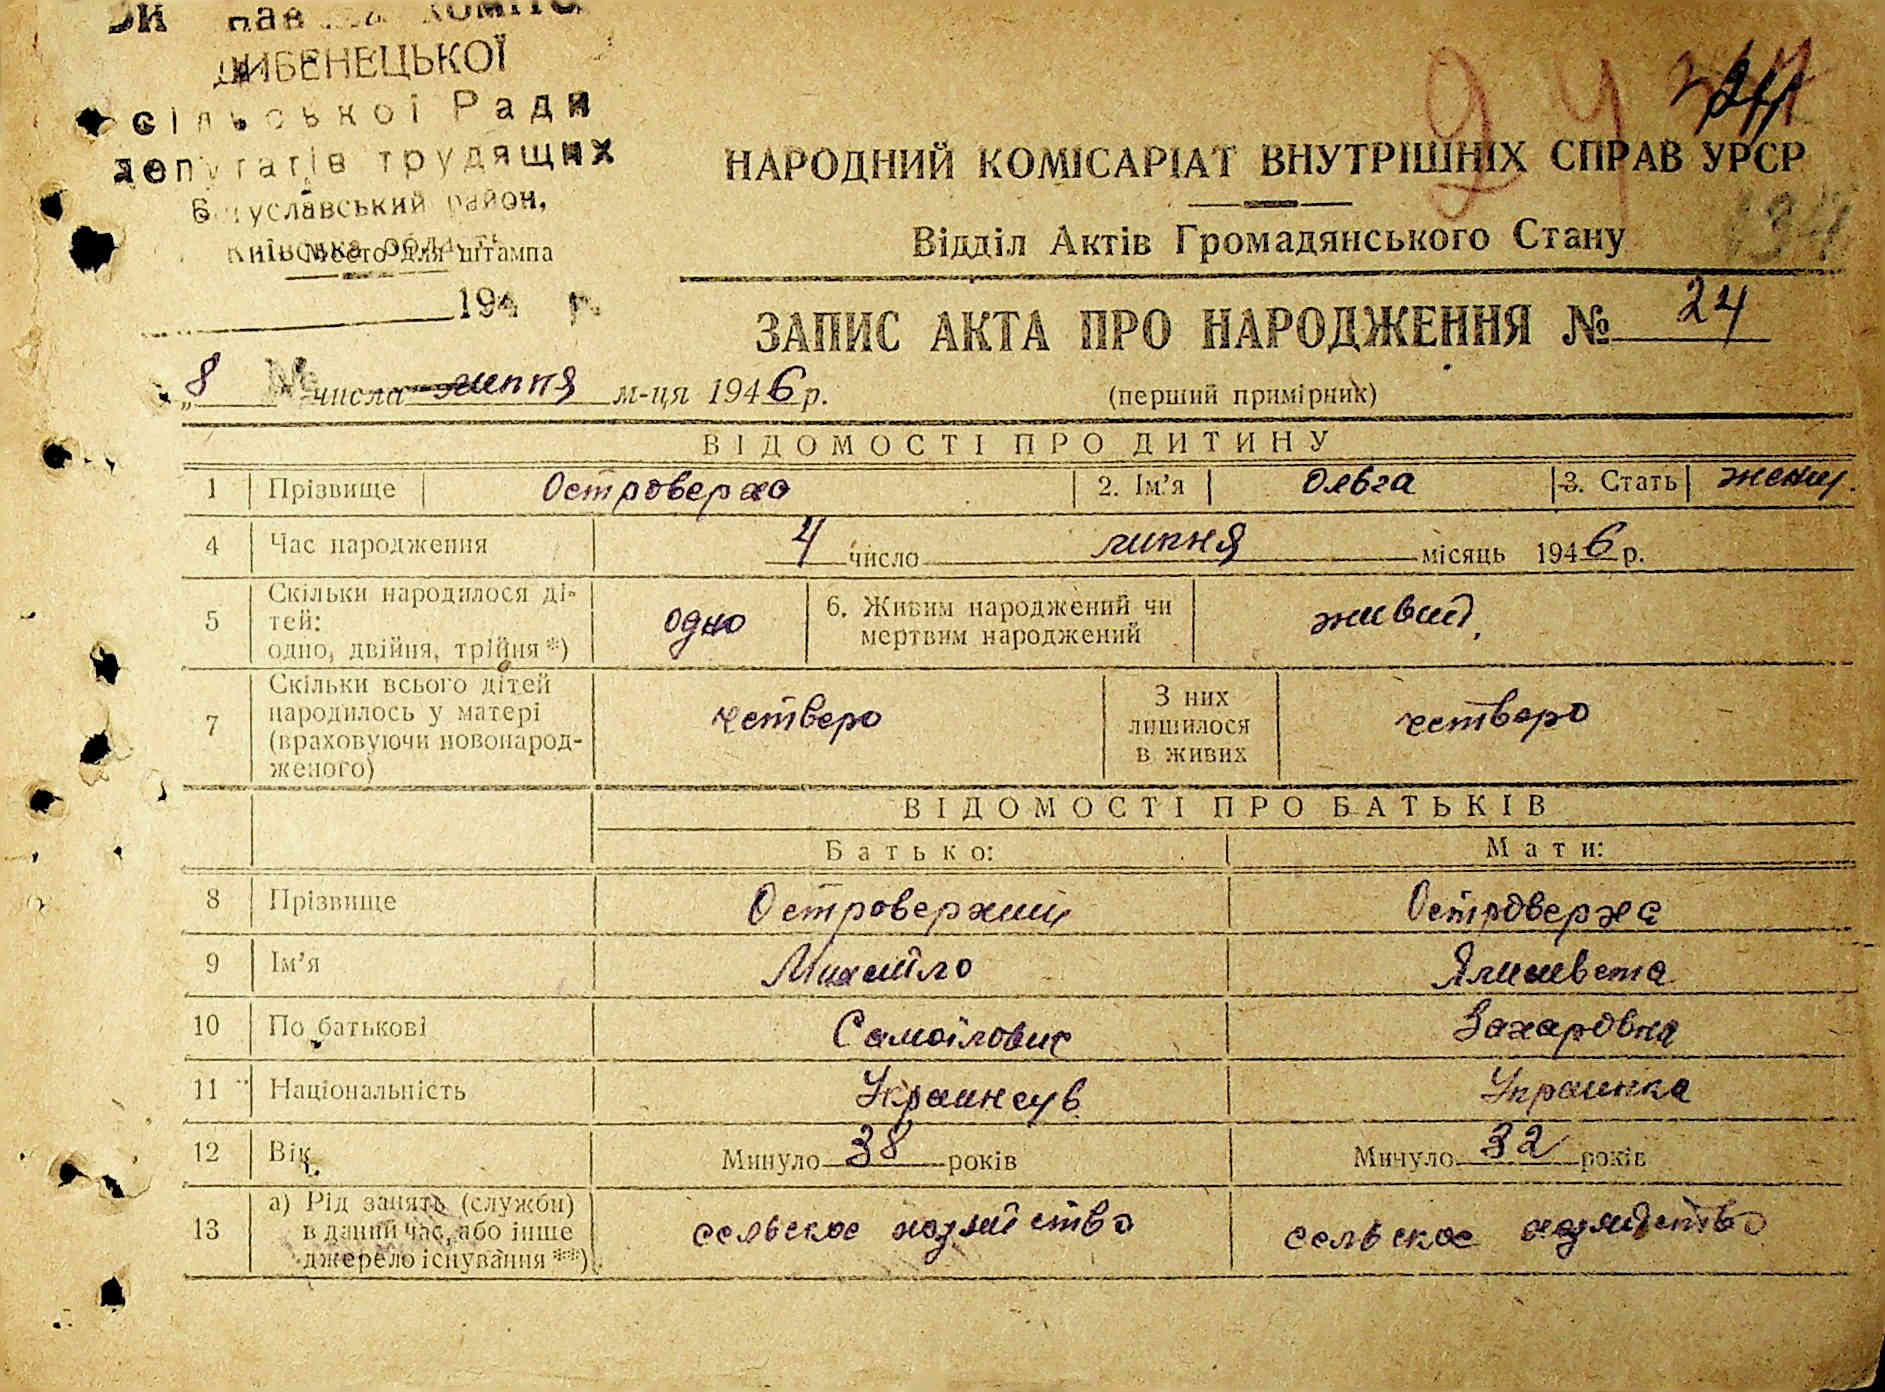 ДИБЕНЕЦЬКОЇ
сільської Ради
депутатів трудящих
Богуславський район,
Київська область
Место для штампа
194 р.
24
НАРОДНИЙ КОМІСАРІАТ ВНУТРІШНІХ СПРАВ УРСР
Відділ Актів Громадянського Стану
134
ЗАПИС АКТА ПРО НАРОДЖЕННЯ № 24
„8 числа липня м-ця 1946 р. (перший примірник)
ВІДОМОСТІ ПРО ДИТИНУ
1 Прізвище Островерхо 2. Ім'я Ольга 3. Стать женщ.
4 Час народження 4 число липня місяць 1946 р.
5 Скільки народилося ді-
тей:
одно, двійня, трійня*) одно 6. Живим народжений чи
мертвим народжений живий.
7 Скільки всього дітей
народилось у матері
(враховуючи новонарод-
женого) четверо З них
лишилося
в живих четверо
ВІДОМОСТІ ПРО БАТЬКІВ
Батько: Мати:
8 Прізвище Островерхий Островерха
9 Ім'я Михайло Ялисивета
10 По батькові Самойлович Захаровна
11 Національність Украинець Украинка
12 Вік Минуло 38 років Минуло 32 років
13 а) Рід занять (служби)
в даний час, або інше
джерело існування**) сельское хозяйство сельское хозяйство